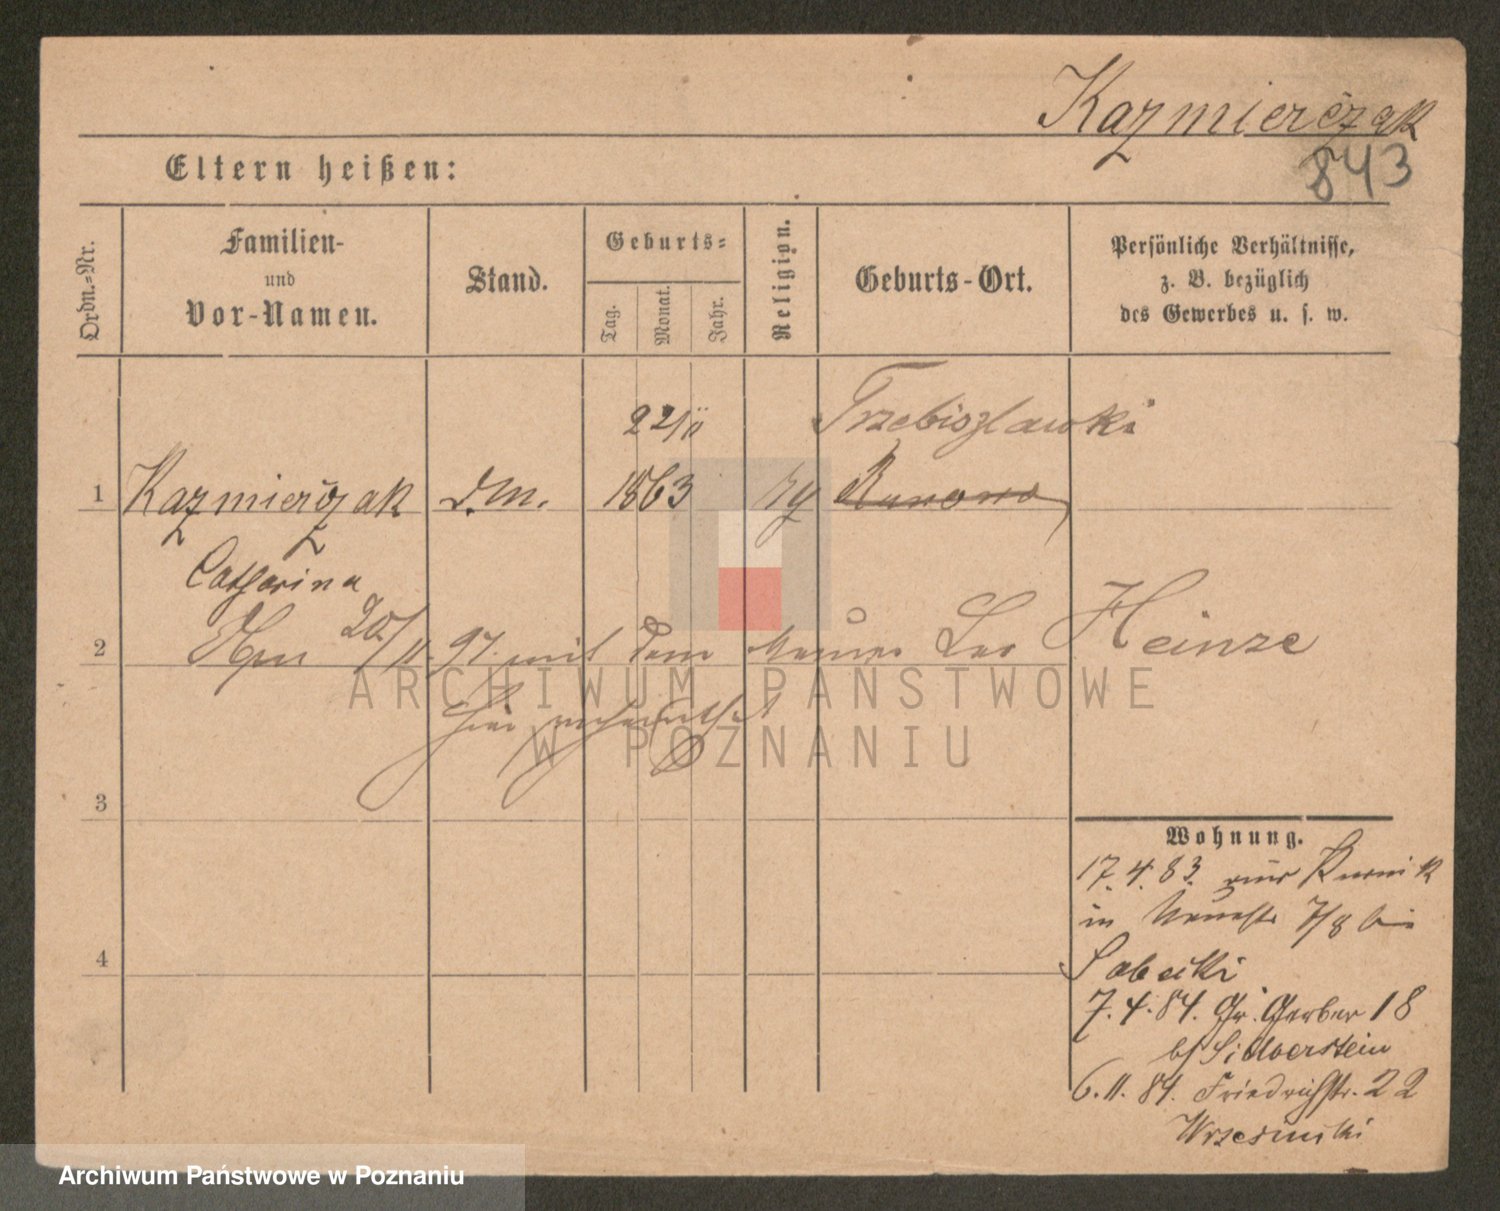 Kazmierczak
843
Eltern heißen:
Ordn.=Nr.
Familien-
und
Vor-Namen.
Stand.
Geburts=
Tag.
Monat.
Jahr.
Religion.
Geburts-Ort.
Persönliche Verhältnisse,
z. B. bezüglich
des Gewerbes u. s. w.
22/11
Trzebiszlawki
1
Kazmierczak
d.m.
1863
Catharina
2
20/11. 97. mit dem Leo Heinze
hier verheirathet
3
Wohnung.
17.4.83. aus Kurnik
in 7/8 bei
4
Sobecki
7.4.84. Gr. Gerber 18
bf Silberstein
6.11.84. Friedrichstr. 22
Wrzesinski
ARCHIWUM PAŃSTWOWE
W POZNANIU
Archiwum Państwowe w Poznaniu